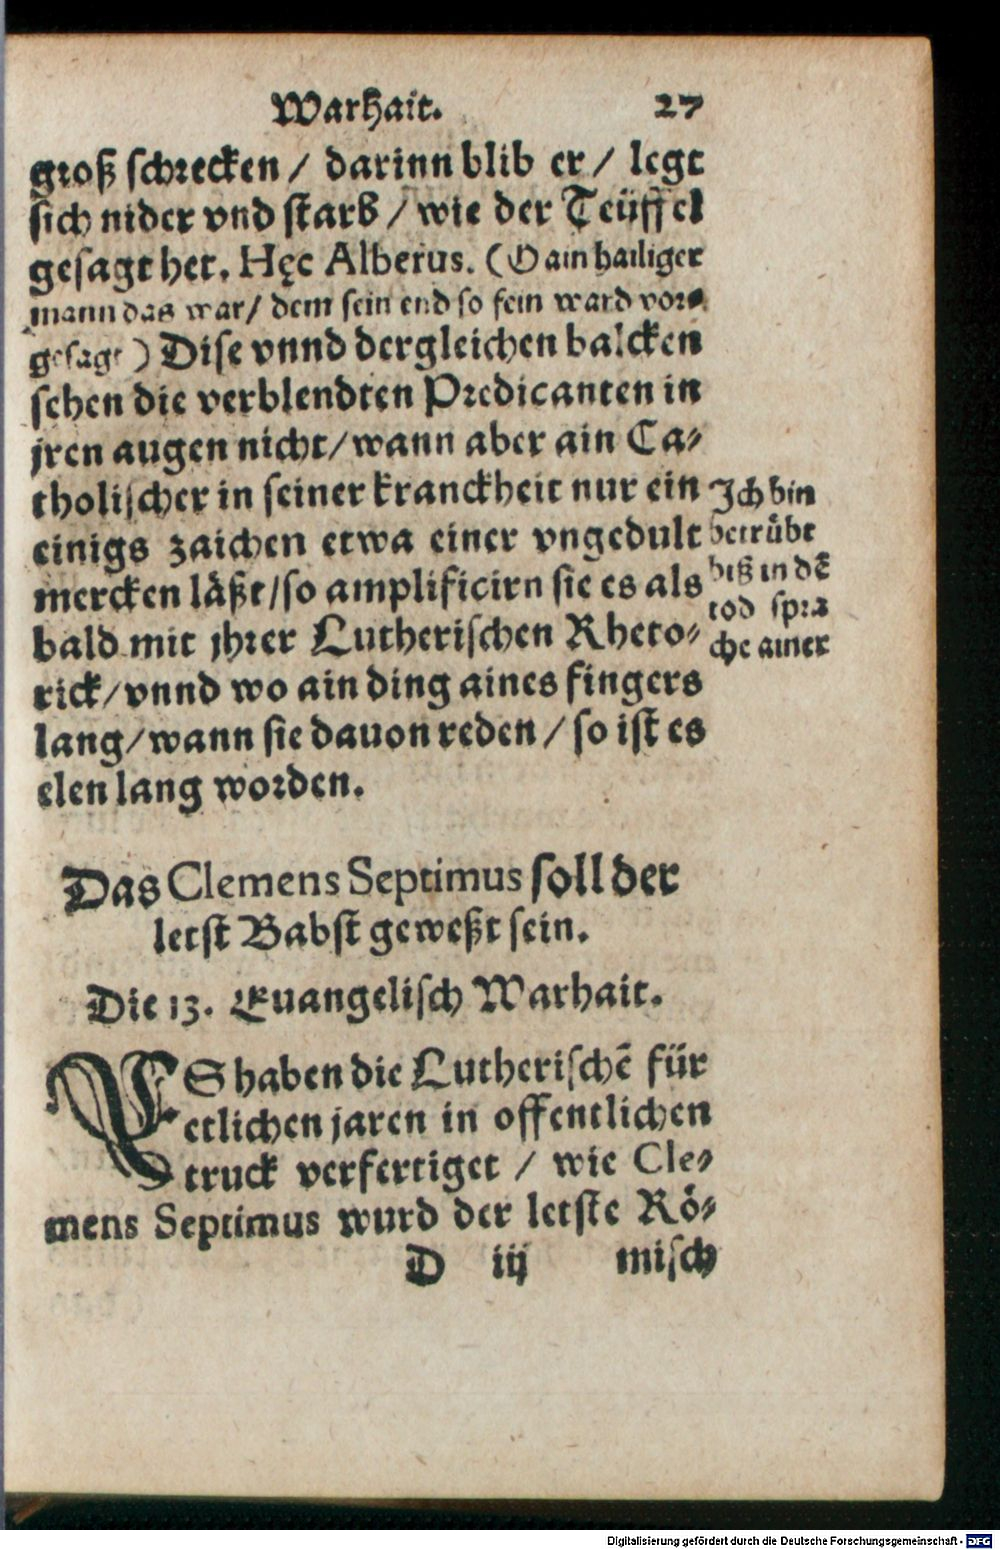 Warhait. 27
groß schrecken / darinn blib er / legt
sich nider vnd starb / wie der Teüffel
gesagt het. Hęc Alberus. (O ain hailiger
mann das war / dem sein end so fein ward vor⸗
gesagt) Dise vnnd dergleichen balcken
sehen die verblendten Predicanten in
jren augen nicht / wann aber ain Ca⸗
tholischer in seiner kranckheit nur ein
einigs zaichen etwa einer vngedult
mercken läßt / so amplificirn sie es als
bald mit jhrer Lutherischen Rheto⸗
rick / vnnd wo ain ding aines fingers
lang / wann sie dauon reden / so ist es
elen lang worden.
Ich bin
betrübt
biß in dē
tod spra
che ainer
Das Clemens Septimus soll der
letst Babst geweßt sein.
Die 13. Euangelisch Warhait.
ES haben die Lutherischē für
etlichen jaren in offentlichen
truck verfertiget / wie Cle⸗
mens Septimus wurd der letste Rö⸗
D iij misch
Digitalisierung gefördert durch die Deutsche Forschungsgemeinschaft - DFG